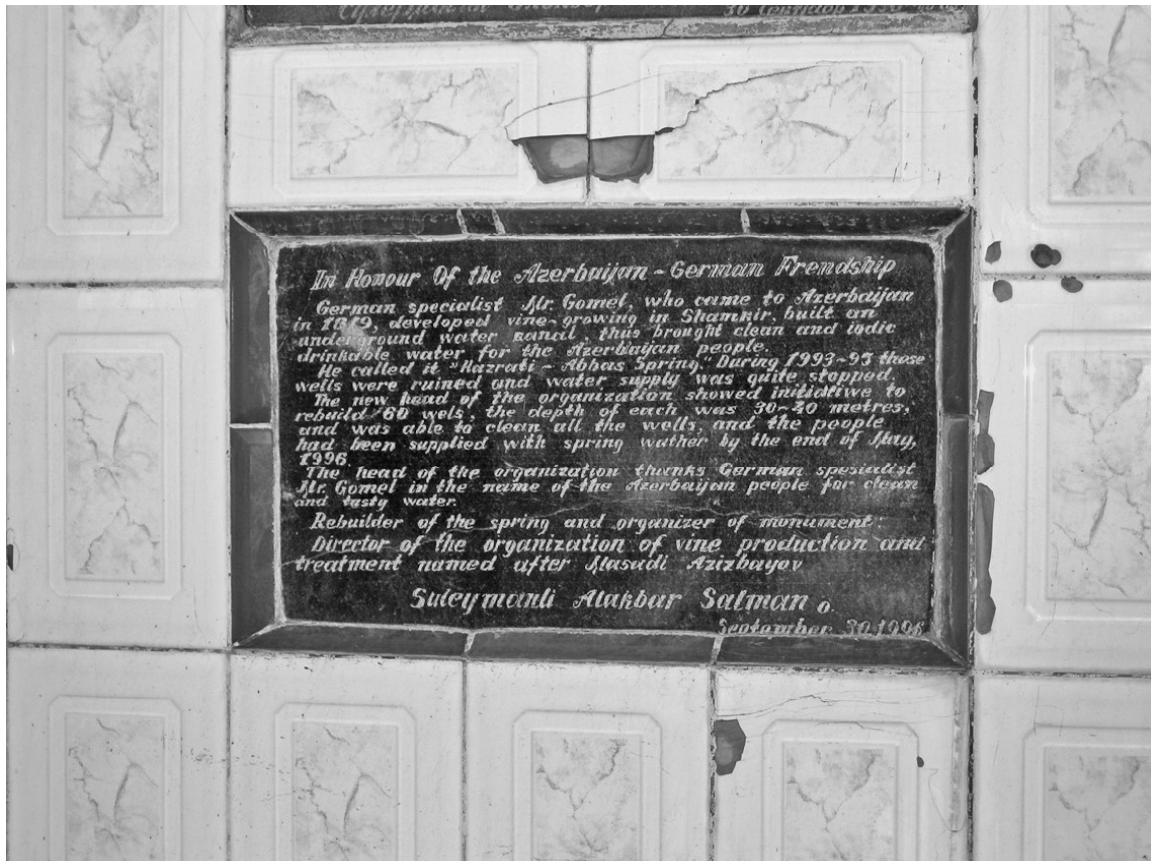 In Honour Of the Azerbaijan - German Frendship
German specialist Mr. Gomel, who came to Azerbaijan
in 1819, developed vine-growing in Shamkir, built an
underground water kanal, thus brought clean and iodic
drinkable water for the Azerbaijan people.
He called it "Hazrati - Abbas Spring." During 1993-95 those
wells were ruined and water supply was quite stopped.
The new head of the organization showed initiatiwe to
rebuild 60 wels, the depth of each was 30-40 metres,
and was able to clean all the wells, and the people
had been supplied with spring wather by the end of May,
1996.
The head of the organization thanks German spesialist
Mr. Gomel in the name of the Azerbaijan people for clean
and tasty water.
Rebuilder of the spring and organizer of monument:
Director of the organization of vine production and
treatment named after Masadi Azizbayov
Suleymanli Alakbar Salman o.
September 30,1996